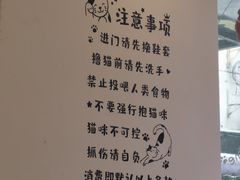 注意事项
进门请先换鞋套
撸猫前请先洗手
禁止投喂人类食物
不要强行抱猫咪
猫咪不可控
抓伤请自负
消费即默认以上条款